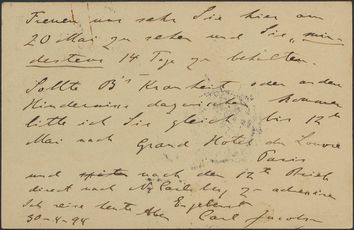 Freuen uns sehr Sie hier am
20 Mai zu sehen und Sie "min
destens 14 Tage zu behalten.
Sollte B's Krankheit oder andere
Hindernisse dazwischen kommen
bitte ich Sie gleich bis 12te
Mai nach Grand Hotel du Louvre
Paris
und später nach den 12te Brief
direct nach Ny Carlsberg zu
Ich reise heute Abend Ergebenst
30-4-94 Carl Jacobsen